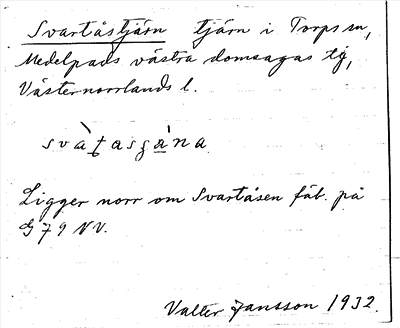 Svartåstjärn tjärn i Torps sn,
Medelpads västra domsagas tg,
Västernorrlands l.
svàtasʒána
Ligger norr om Svartåsen fäb. på
G 79 NV.
Valter Jansson 1932.